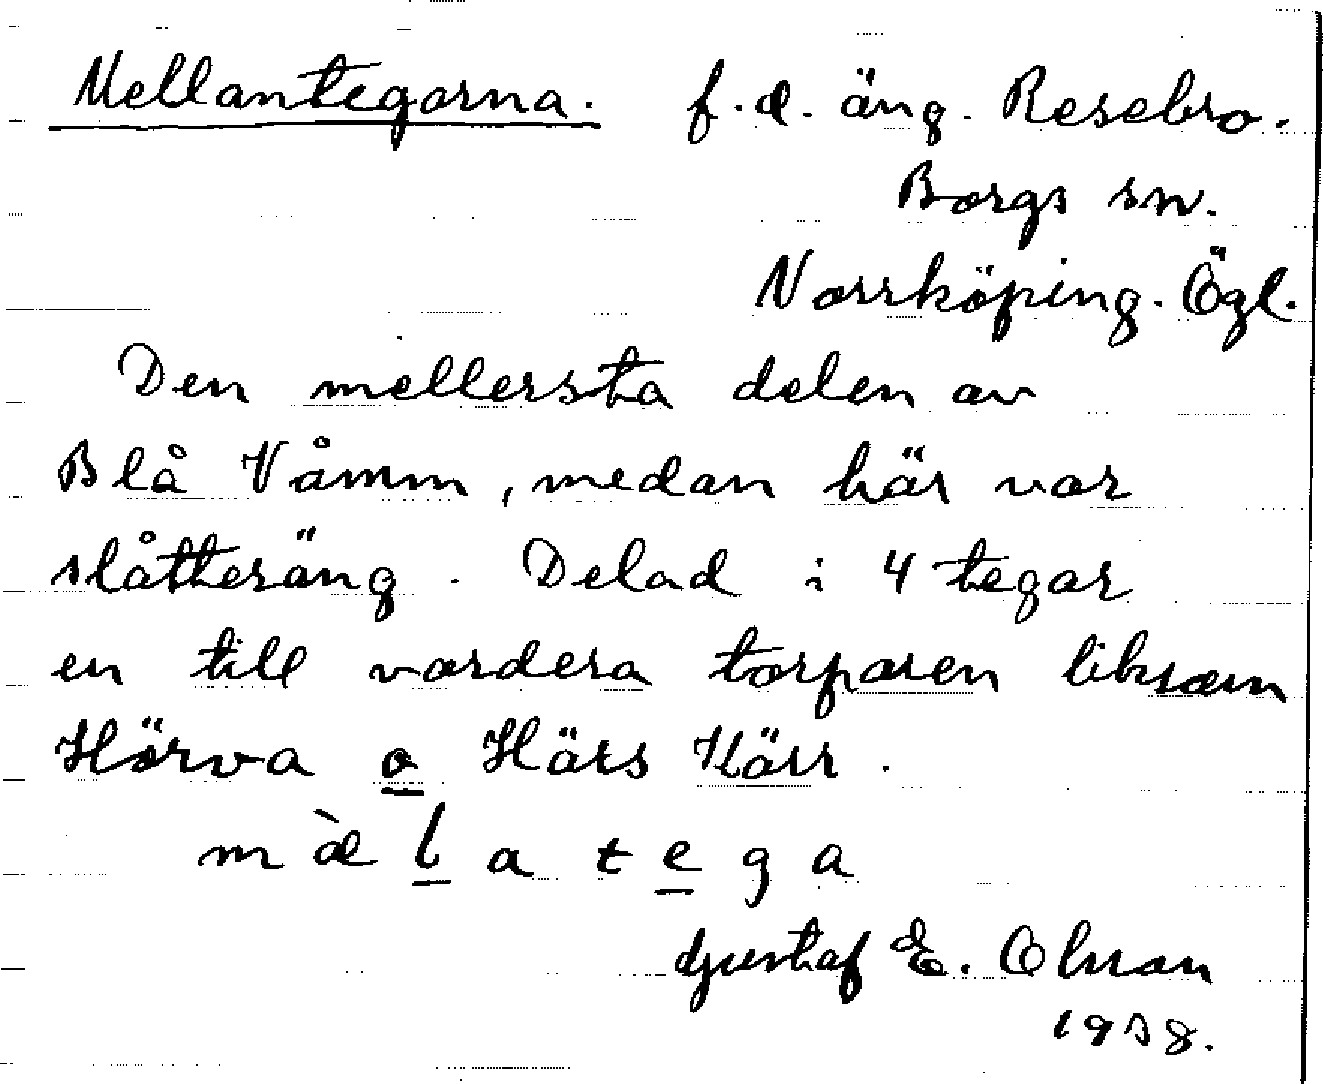 Mellantegarna. f.d. äng. Resebro.
Borgs sn.
Norrköping. Ögl.
Den mellersta delen av
Blå Våmm, medan här var
slåtteräng. Delad i 4 tegar
en till vardera torparen liksom
Hörva o Härs Kärr.
m æ̀ l a t e g a
Gustaf E. Olsson
1938.